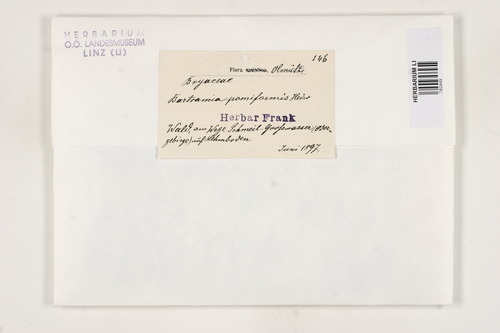 HERBARIUM
O.Ö. LANDESMUSEUM
LINZ (LI)
146
Flora Olmütz
Bryaceae
Bartramia pomiformis Hedw
Herbar Frank
Wald, am Wege Schmeil-Großwasser (Oder-
gebirge) auf Lehmboden
Juni 1897.
HERBARIUM LI